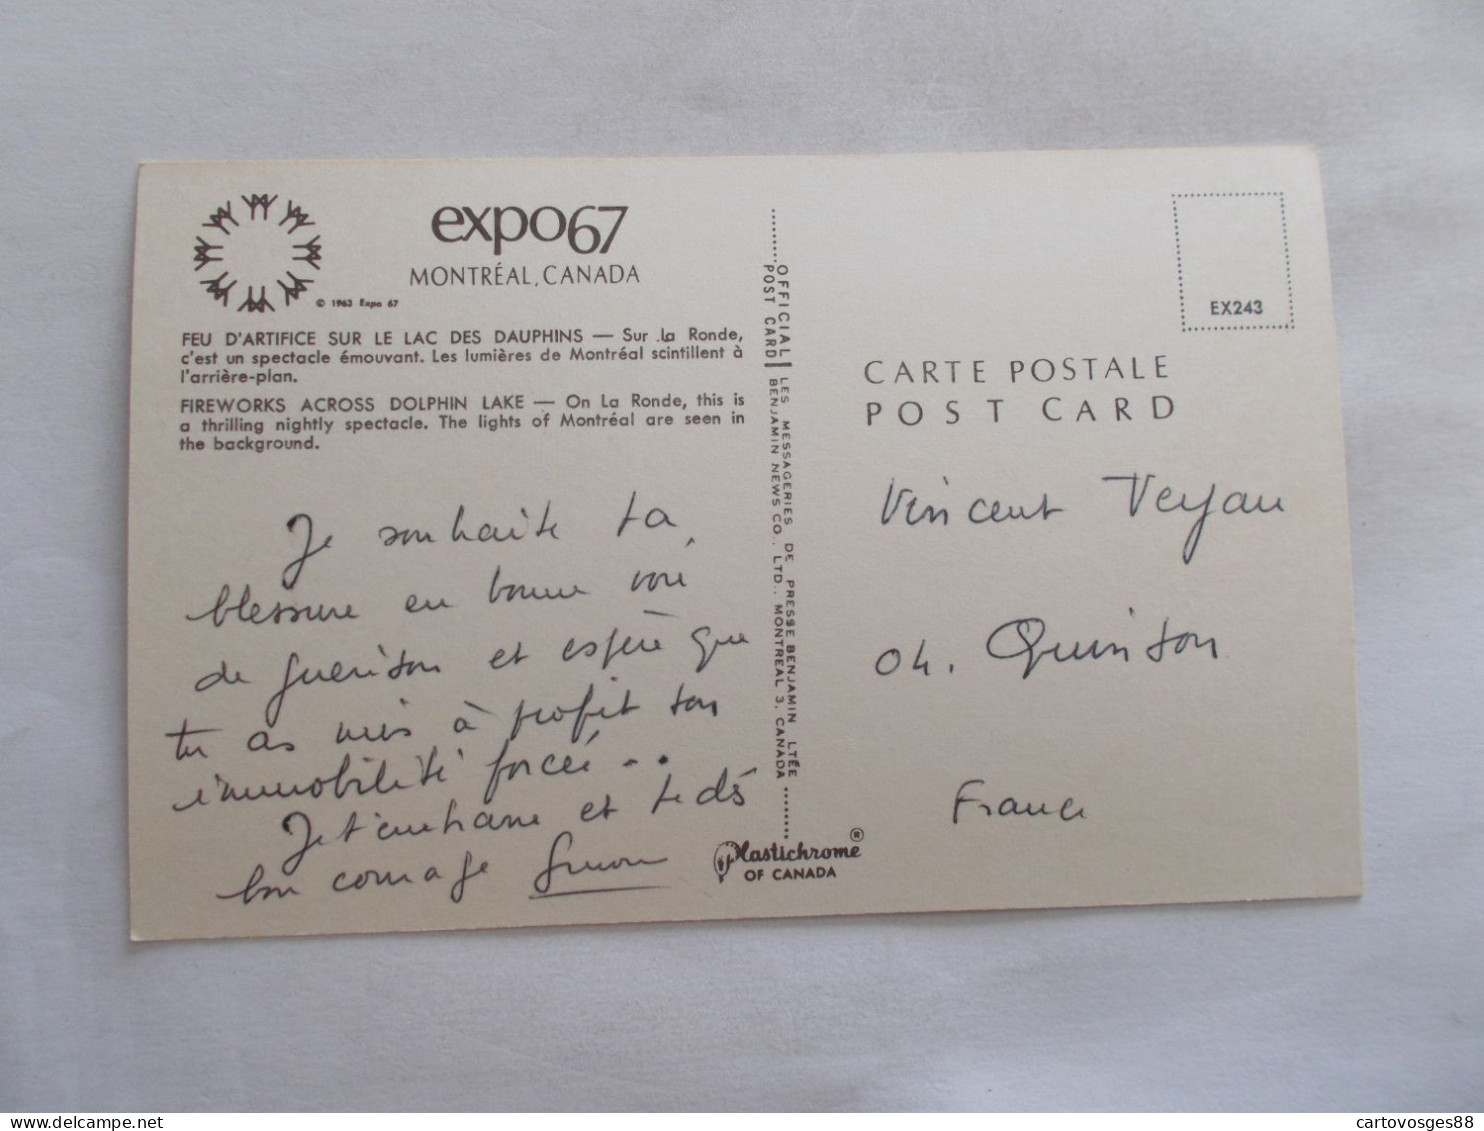 expo67
MONTRÉAL, CANADA
© 1963 Expo 67
FEU D'ARTIFICE SUR LE LAC DES DAUPHINS — Sur la Ronde,
c'est un spectacle émouvant. Les lumières de Montréal scintillent à
l'arrière-plan.
FIREWORKS ACROSS DOLPHIN LAKE — On La Ronde, this is
a thrilling nightly spectacle. The lights of Montréal are seen in
the background.
Je souhaite ta
blessure en bonne voie
de guérison et espère que
tu as mis à profit ton
immobilité forcée...
Je t'embrasse et te dis
bon courage
Plastichrome ®
OF CANADA
OFFICIAL POST CARD
LES MESSAGERIES DE PRESSE BENJAMIN LTÉE
BENJAMIN NEWS CO., LTD., MONTREAL 3, CANADA
EX243
CARTE POSTALE
POST CARD
Vincent Veyan
04. Quinson
France
cartovosges88